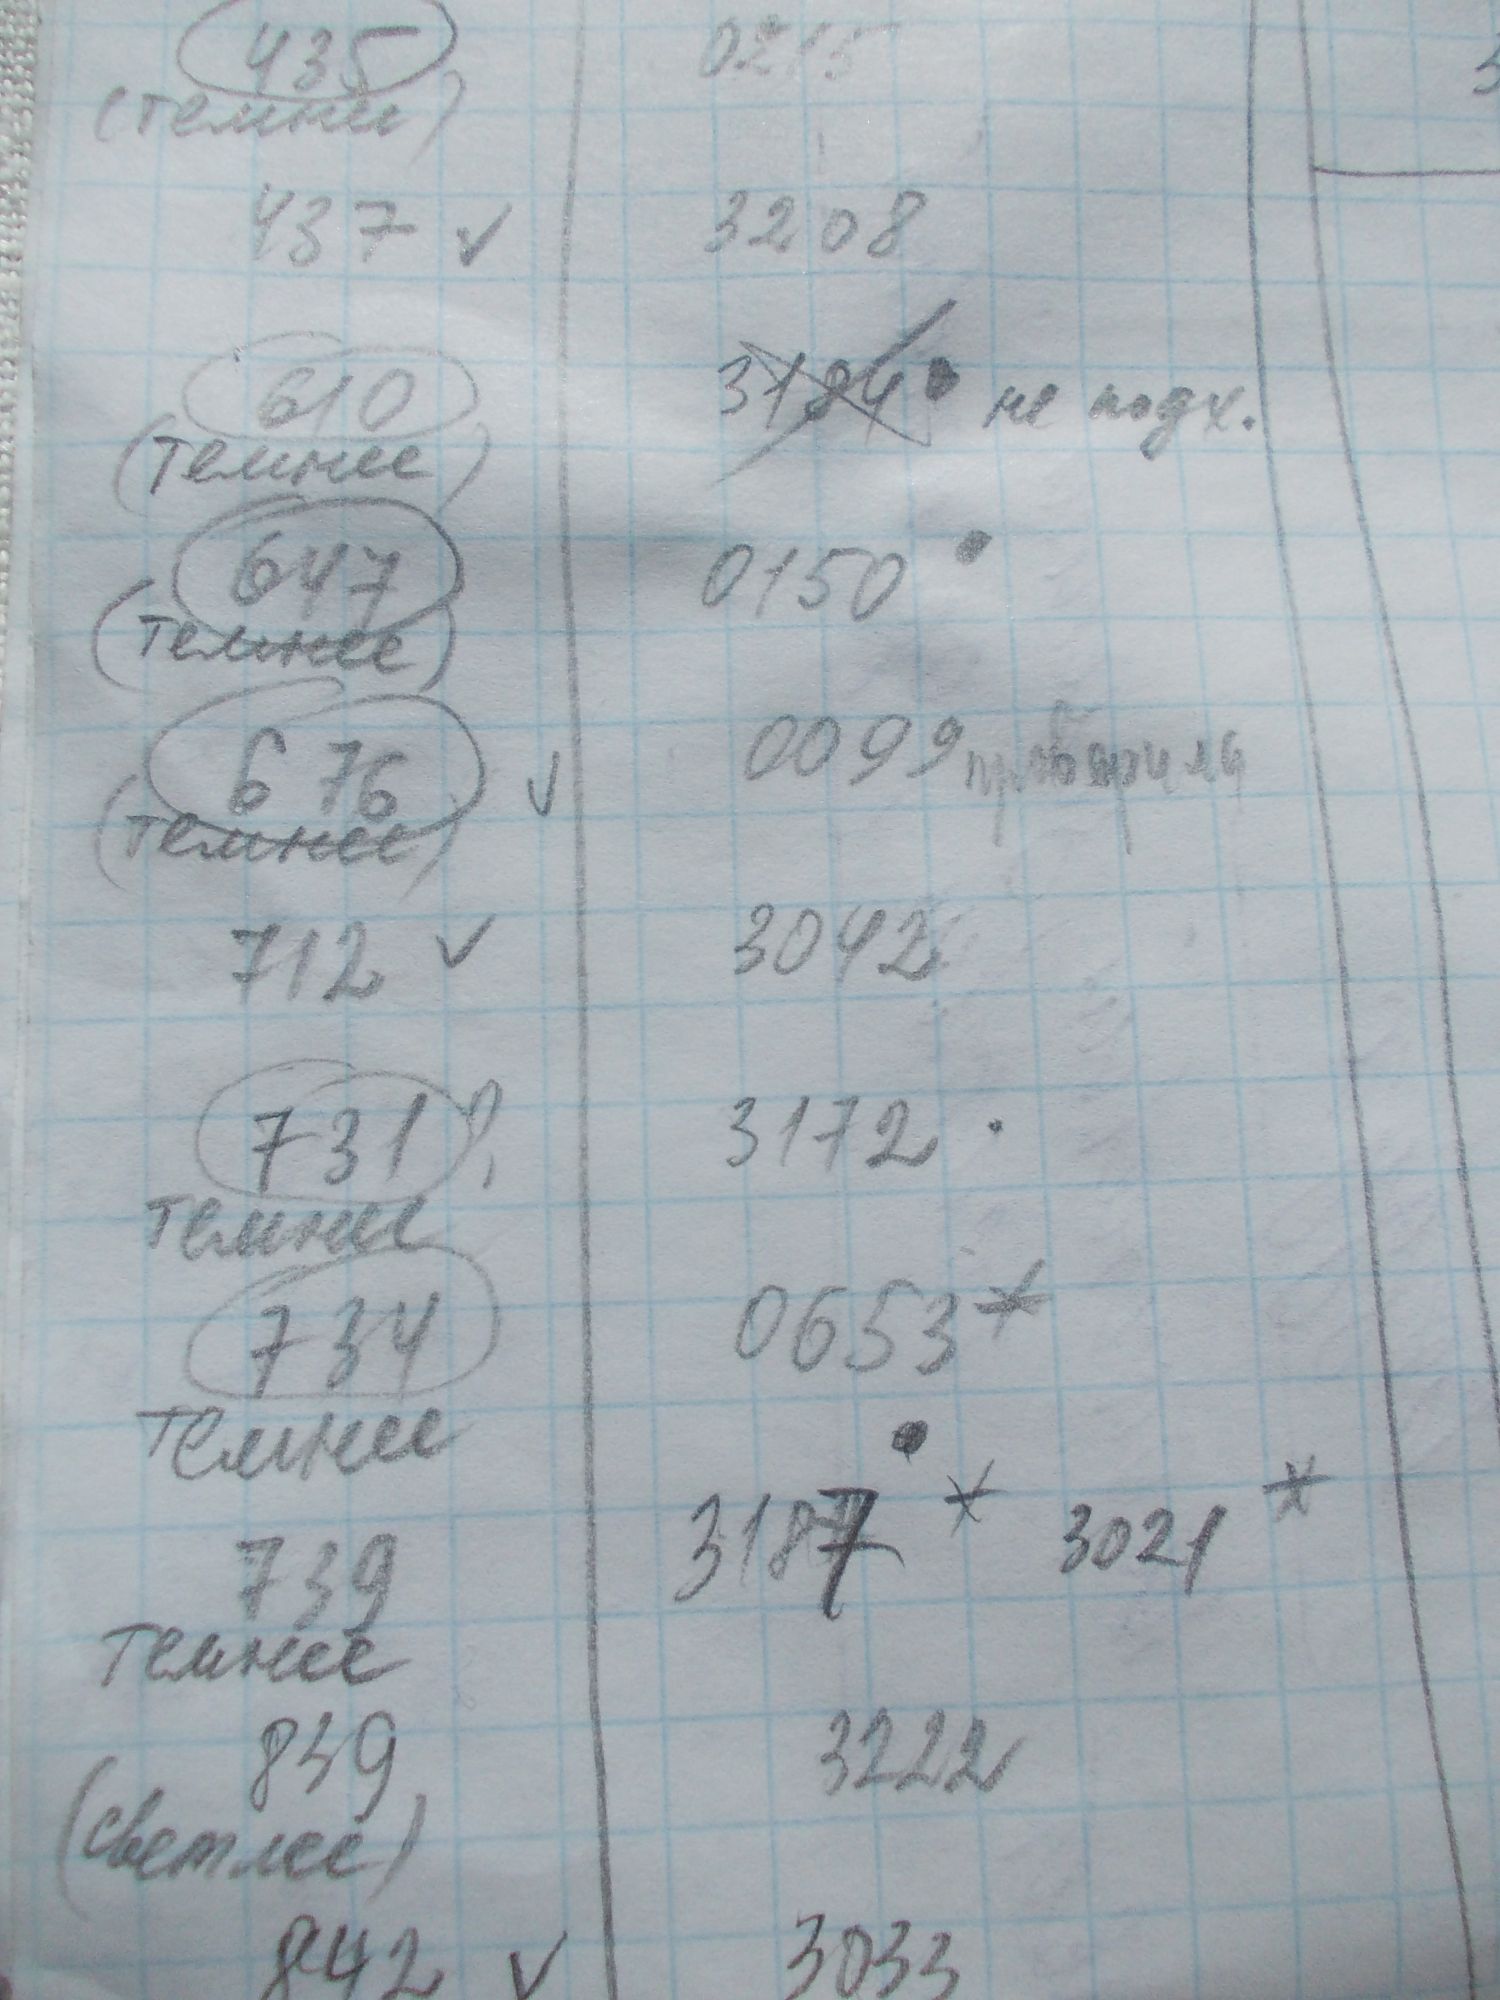 435 0215
(темнее)
437 ✓ 3208
610 3184 не подх.
(темнее)
647 0150
(темнее)
676 ✓ 0099 проверила
(темнее)
712 ✓ 3042
731? 3172
темнее
734 0653*
темнее
739 3187* 3021*
темнее
839 3222
(светлее)
842 ✓ 3033